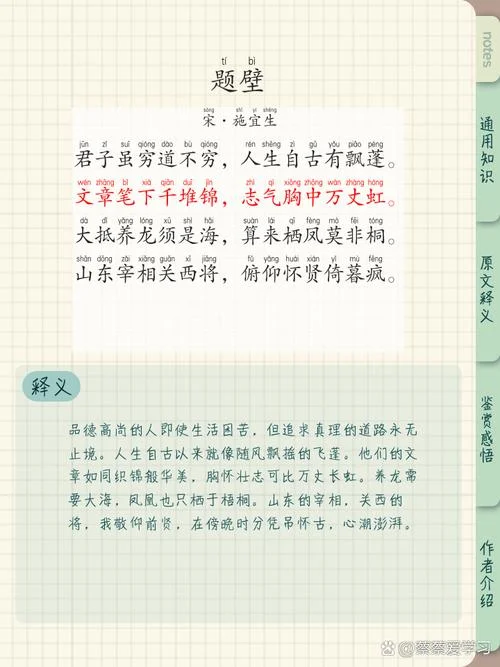 tí bì
题壁
sòng shī yí shēng
宋·施宜生
jūn zǐ suī qióng dào bù qióng rén shēng zì gǔ yǒu piāo péng
君子虽穷道不穷，人生自古有飘蓬。
wén zhāng bǐ xià qiān duī jǐn zhì qì xiōng zhōng wàn zhàng hóng
文章笔下千堆锦，志气胸中万丈虹。
dà dǐ yǎng lóng xū shì hǎi suàn lái qī fèng mò fēi tóng
大抵养龙须是海，算来栖凤莫非桐。
shān dōng zǎi xiàng guān xī jiàng fǔ yǎng huái xián yǐ mù fēng
山东宰相关西将，俯仰怀贤倚暮疯。
释义
品德高尚的人即使生活困苦，但追求真理的道路永无
止境。人生自古以来就像随风飘摇的飞蓬。他们的文
章如同织锦般华美，胸怀壮志可比万丈长虹。养龙需
要大海，凤凰也只栖于梧桐。山东的宰相，关西的
将，我敬仰前贤，在傍晚时分凭吊怀古，心潮澎湃。
notes
通用知识
原文释义
鉴赏感悟
作者介绍
@蔡蔡爱学习